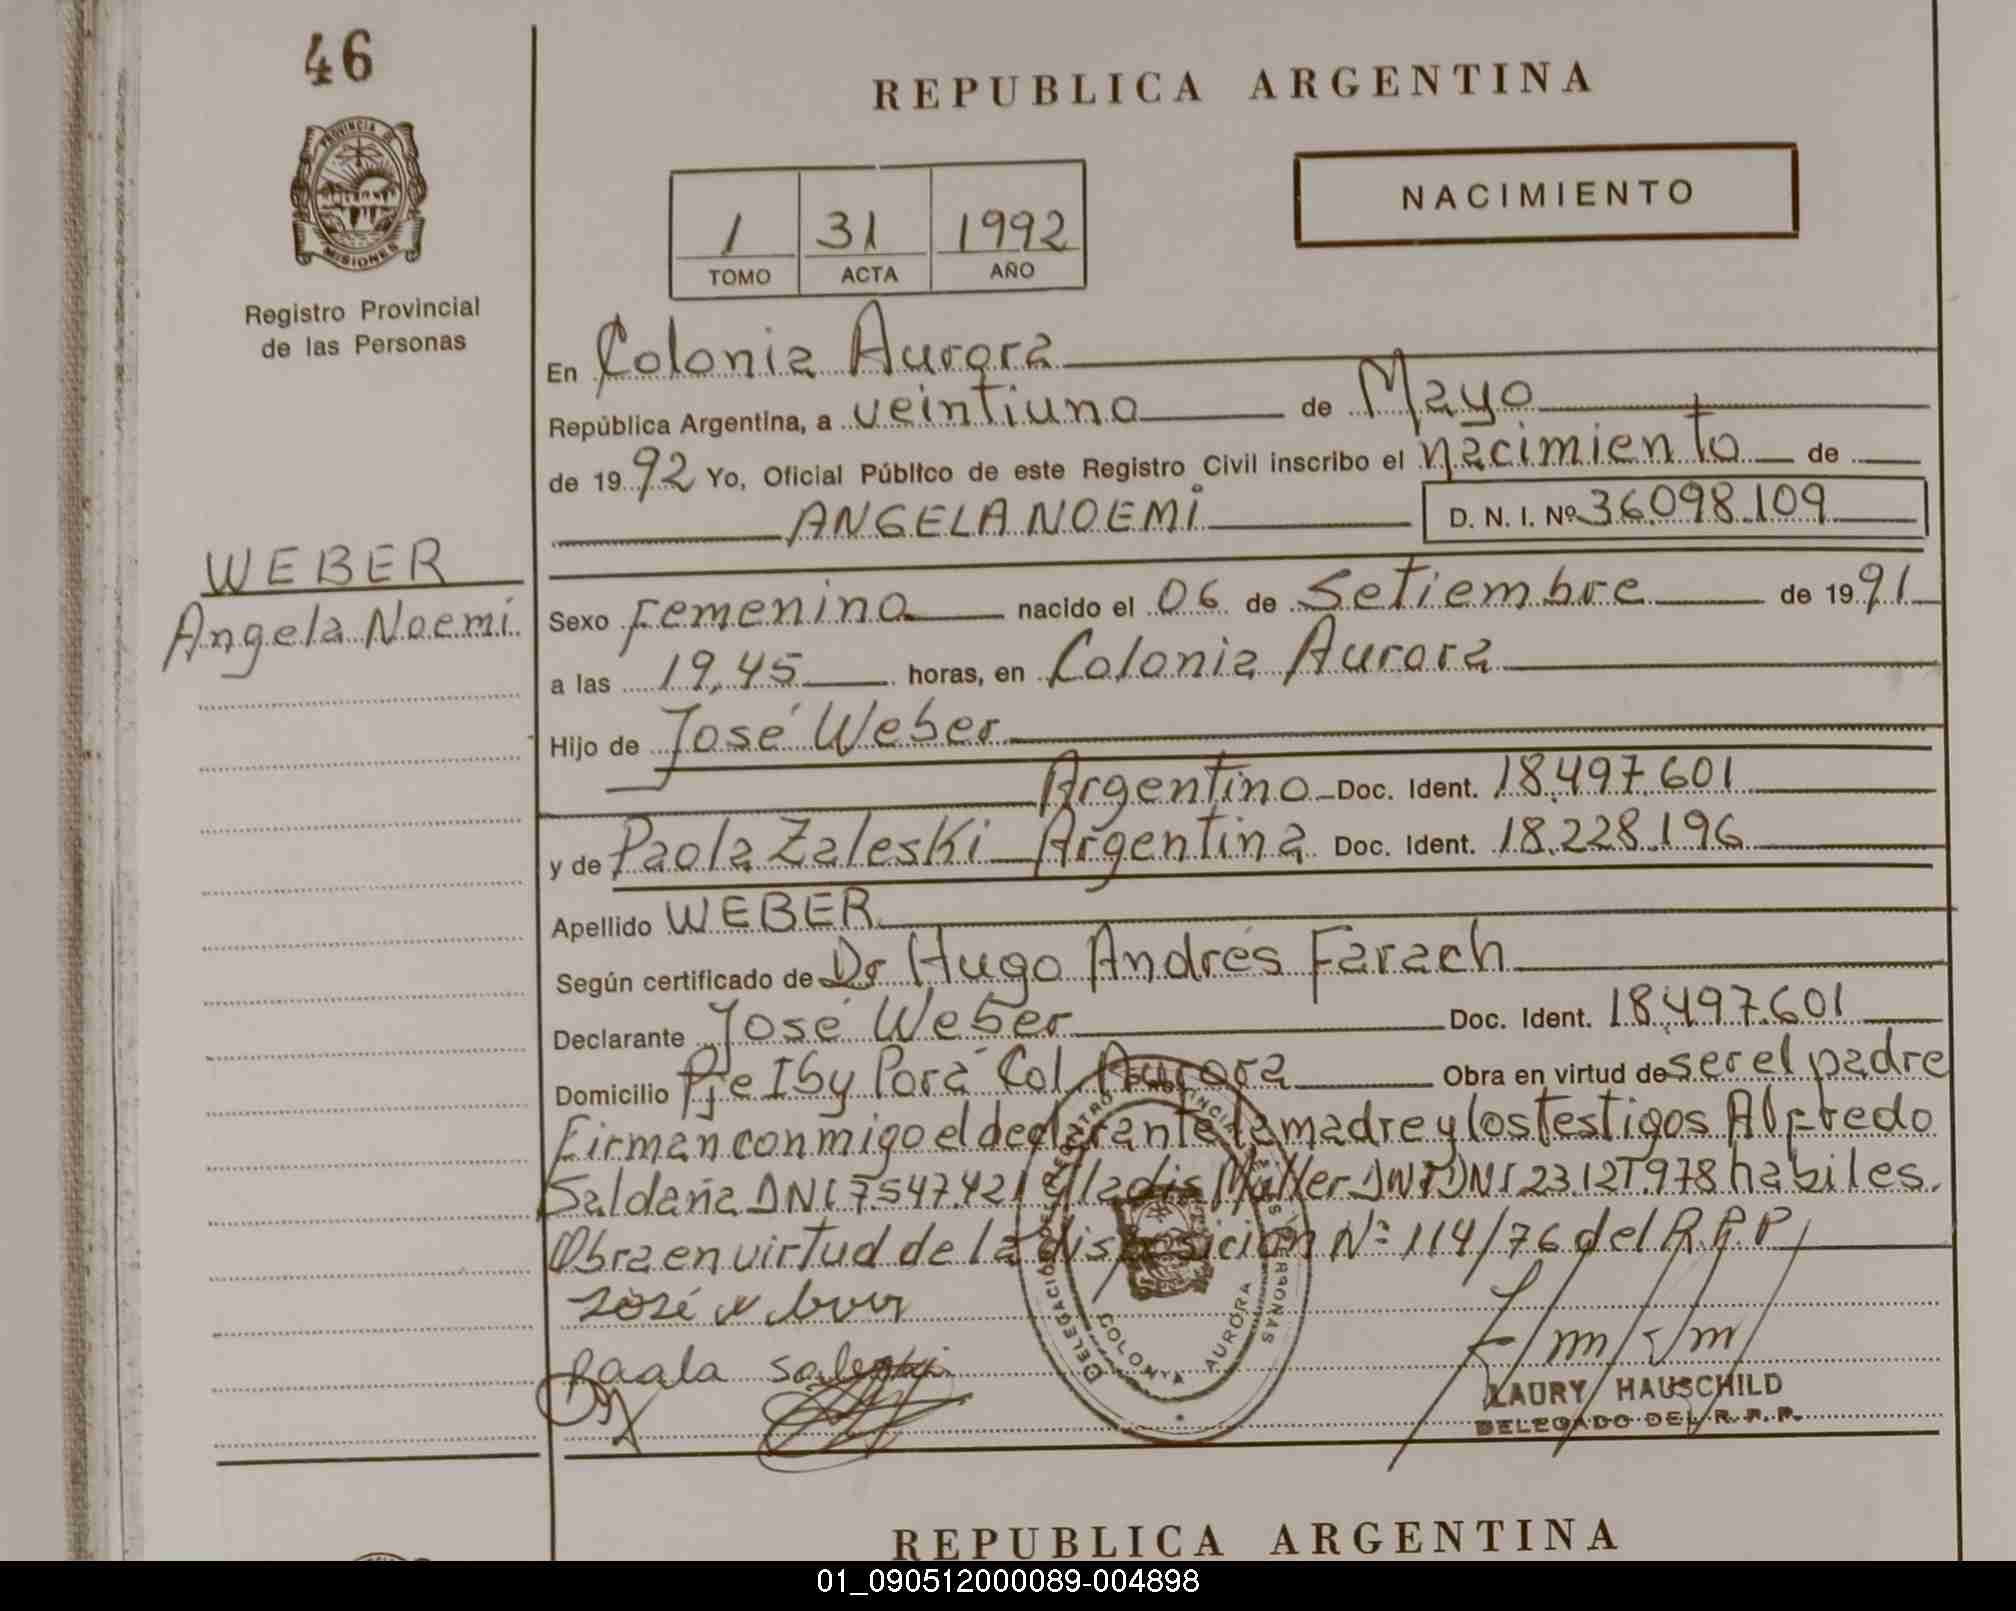 46
REPUBLICA ARGENTINA
PROVINCIA DE
MISIONES
Registro Provincial
de las Personas
NACIMIENTO
1 31 1992
TOMO ACTA AÑO
En Colonia Aurora
República Argentina, a veintiuno de Mayo
de 1992 Yo, Oficial Público de este Registro Civil inscribo el nacimiento de
ANGELA NOEMI D. N. I. Nº 36.098.109
WEBER
Angela Noemi
Sexo Femenino nacido el 06 de Setiembre de 1991
a las 19,45 horas, en Colonia Aurora
Hijo de José Weber
Argentino Doc. Ident. 18.497.601
y de Paola Zaleski Argentina Doc. Ident. 18.228.196
Apellido WEBER
Según certificado de Dr Hugo Andrés Farach
Declarante José Weber Doc. Ident. 18.497.601
Domicilio Pje Iby Porá Col. Aurora Obra en virtud de ser el padre
Firman conmigo el declarante la madre y los testigos Alfredo
Saldaña DNI 7.547.421 Gladis Müller DNI 23.121.978 habiles.
Obra en virtud de la disposición Nº 114/76 del R.P.P
José
Paola
DELEGACION REGISTRO PROVINCIAL DE LAS PERSONAS
COLONIA AURORA
LAURY HAUSCHILD
DELEGADO DEL R. P. P.
REPUBLICA ARGENTINA
01_090512000089-004898